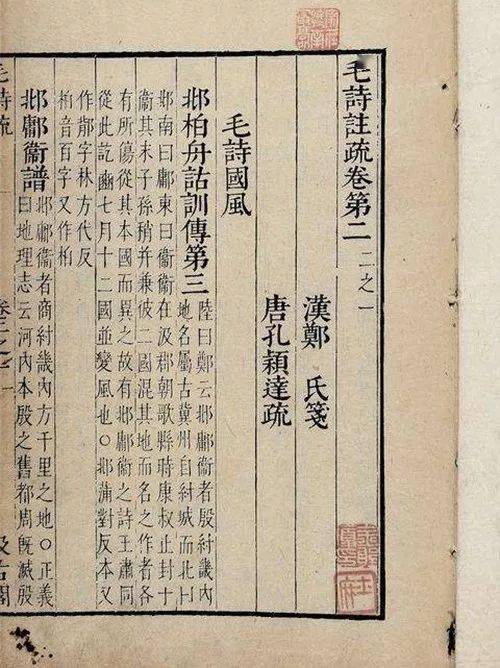 毛詩註疏卷第二 二之一
漢鄭 氏箋
唐孔穎達疏
毛詩國風
邶柏舟詁訓傳第三 陸曰鄭云邶鄘衞者殷紂畿內
地名屬古冀州自紂城而北曰
邶南曰鄘東曰衞衞在汲郡朝歌縣時康叔止封于
衞其末子孫稍并兼彼二國混其地而名之作者各
有所傷從其本國而異之故有邶鄘衞之詩王肅同
從此訖豳七月十二國並變風也○邶蒲對反本又
作鄁字林方代反
柏音百字又作栢
邶鄘衞譜 邶鄘衞者商紂畿內方千里之地○正義
曰地理志云河內本殷之舊都周旣滅殷
毛詩疏 卷二之一 汲古閣